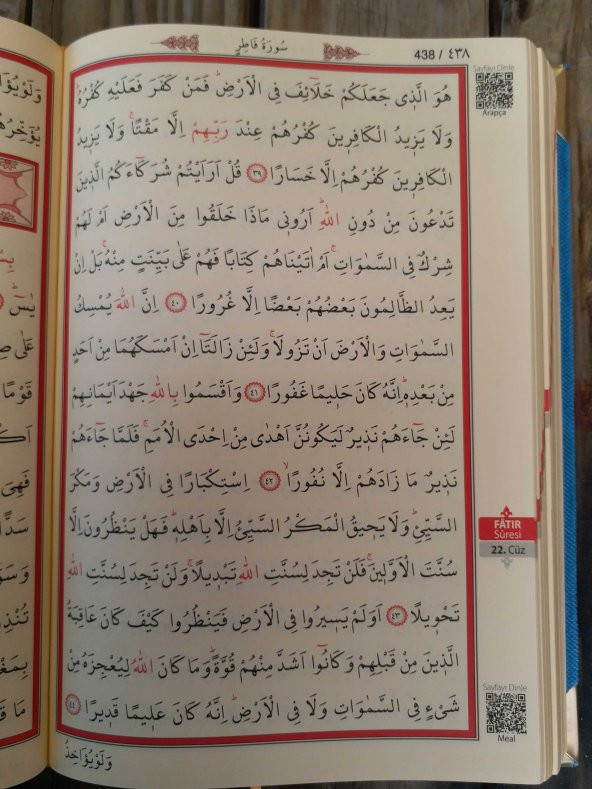 سُورَةُ فَاطِرٍ
438 / ٤٣٨
هُوَ الَّذ۪ي جَعَلَكُمْ خَلَٓائِفَ فِي الْاَرْضِۜ فَمَنْ كَفَرَ فَعَلَيْهِ كُفْرُهُۜ
وَلَا يَز۪يدُ الْكَافِر۪ينَ كُفْرُهُمْ عِنْدَ رَبِّهِمْ اِلَّا مَقْتًاۚ وَلَا يَز۪يدُ
الْكَافِر۪ينَ كُفْرُهُمْ اِلَّا خَسَارًا ٣٩ قُلْ اَرَاَيْتُمْ شُرَكَٓاءَكُمُ الَّذ۪ينَ
تَدْعُونَ مِنْ دُونِ اللّٰهِۜ اَرُون۪ي مَاذَا خَلَقُوا مِنَ الْاَرْضِ اَمْ لَهُمْ
شِرْكٌ فِي السَّمٰوَاتِۚ اَمْ اٰتَيْنَاهُمْ كِتَابًا فَهُمْ عَلٰى بَيِّنَتٍ مِنْهُۚ بَلْ اِنْ
يَعِدُ الظَّالِمُونَ بَعْضُهُمْ بَعْضًا اِلَّا غُرُورًا ٤٠ اِنَّ اللّٰهَ يُمْسِكُ
السَّمٰوَاتِ وَالْاَرْضَ اَنْ تَزُولَاۚ وَلَئِنْ زَالَتَٓا اِنْ اَمْسَكَهُمَا مِنْ اَحَدٍ
مِنْ بَعْدِه۪ۜ اِنَّهُ كَانَ حَل۪يمًا غَفُورًا ٤١ وَاَقْسَمُوا بِاللّٰهِ جَهْدَ اَيْمَانِهِمْ
لَئِنْ جَٓاءَهُمْ نَذ۪يرٌ لَيَكُونُنَّ اَهْدٰى مِنْ اِحْدَى الْاُمَمِۚ فَلَمَّا جَٓاءَهُمْ
نَذ۪يرٌ مَا زَادَهُمْ اِلَّا نُفُورًاۙ ٤٢ اِسْتِكْبَارًا فِي الْاَرْضِ وَمَكْرَ
السَّيِّئِۜ وَلَا يَح۪يقُ الْمَكْرُ السَّيِّئُ اِلَّا بِاَهْلِه۪ۜ فَهَلْ يَنْظُرُونَ اِلَّا
سُنَّتَ الْاَوَّل۪ينَۚ فَلَنْ تَجِدَ لِسُنَّتِ اللّٰهِ تَبْد۪يلًاۚ وَلَنْ تَجِدَ لِسُنَّتِ اللّٰهِ
تَحْو۪يلًا ٤٣ اَوَلَمْ يَس۪يرُوا فِي الْاَرْضِ فَيَنْظُرُوا كَيْفَ كَانَ عَاقِبَةُ
الَّذ۪ينَ مِنْ قَبْلِهِمْ وَكَانُٓوا اَشَدَّ مِنْهُمْ قُوَّةًۜ وَمَا كَانَ اللّٰهُ لِيُعْجِزَهُ مِنْ
شَيْءٍ فِي السَّمٰوَاتِ وَلَا فِي الْاَرْضِۜ اِنَّهُ كَانَ عَل۪يمًا قَد۪يرًا ٤٤
وَلَوْ يُؤَاخِذُ
Sayfayı Dinle
Arapça
FÂTIR
Sûresi
22. Cüz
Sayfayı Dinle
Meal